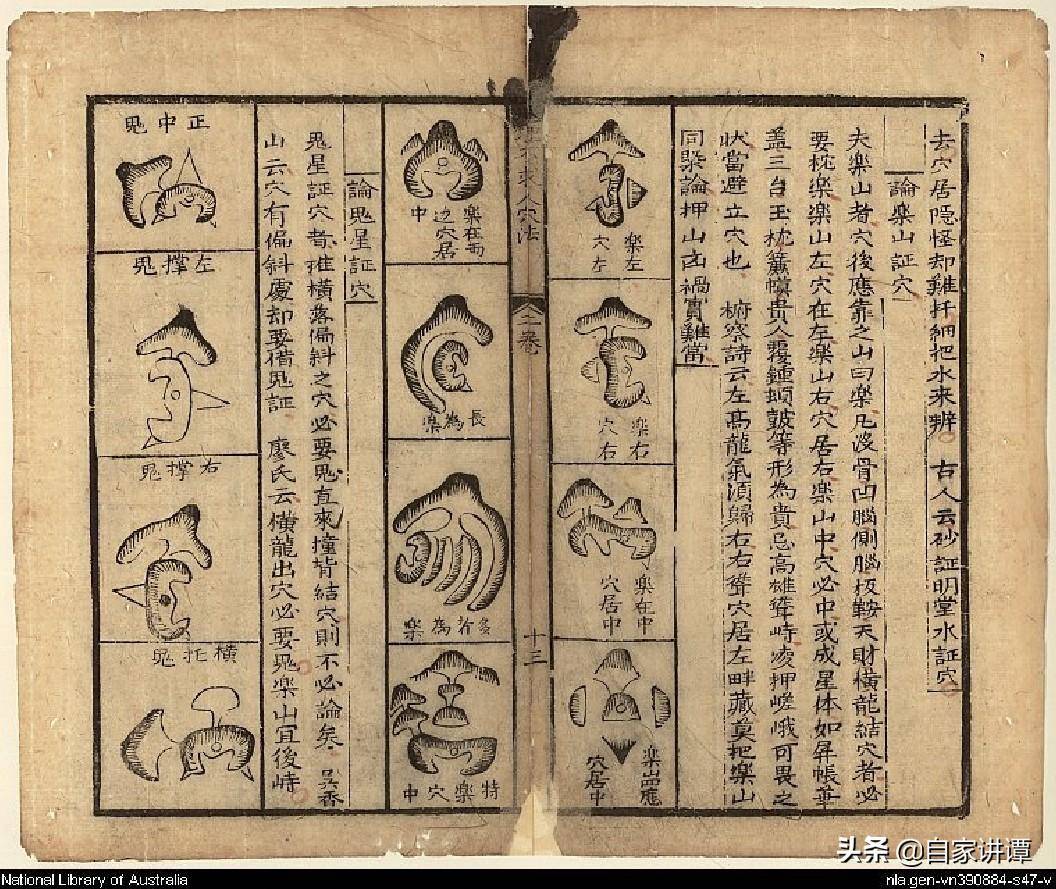 去穴居隐怪却難扦細把水来辨　古人云砂証明堂水証穴
論樂山証穴
夫樂山者穴後應靠之山曰樂凡没骨凹腦側腦扳鞍天財橫龍結穴者必
要枕樂樂山左穴在左樂山右穴居右樂山中穴必中或成星体如屏帳華
盖三台玉枕簾幙貴人覆鍾頓皷等形為貴忌高雄聳峙凌押嵯峨可畏之
状當避立穴也　檷察詩云左髙龍氣湏歸右右聳穴居左畔藏莫把樂山
同槩論押山凶禍實難當
樂左
穴左
樂右
穴右
樂在中
穴居中
樂耑應
穴居中
求人穴法
二卷
十三
樂在两
边穴居
中
長為樂
多者為樂
特樂穴中
論鬼星証穴
鬼星証穴者推橫落偏斜之穴必要鬼直來撞背結穴則不必論矣　吴香
山云穴有偏斜處却要借鬼証　廖氏云橫龍出穴必要鬼樂山宜後峙
正中鬼
左撑鬼
右撑鬼
橫托鬼
头条 @自家讲谭
National Library of Australia
nla.gen-vn390884-s47-v